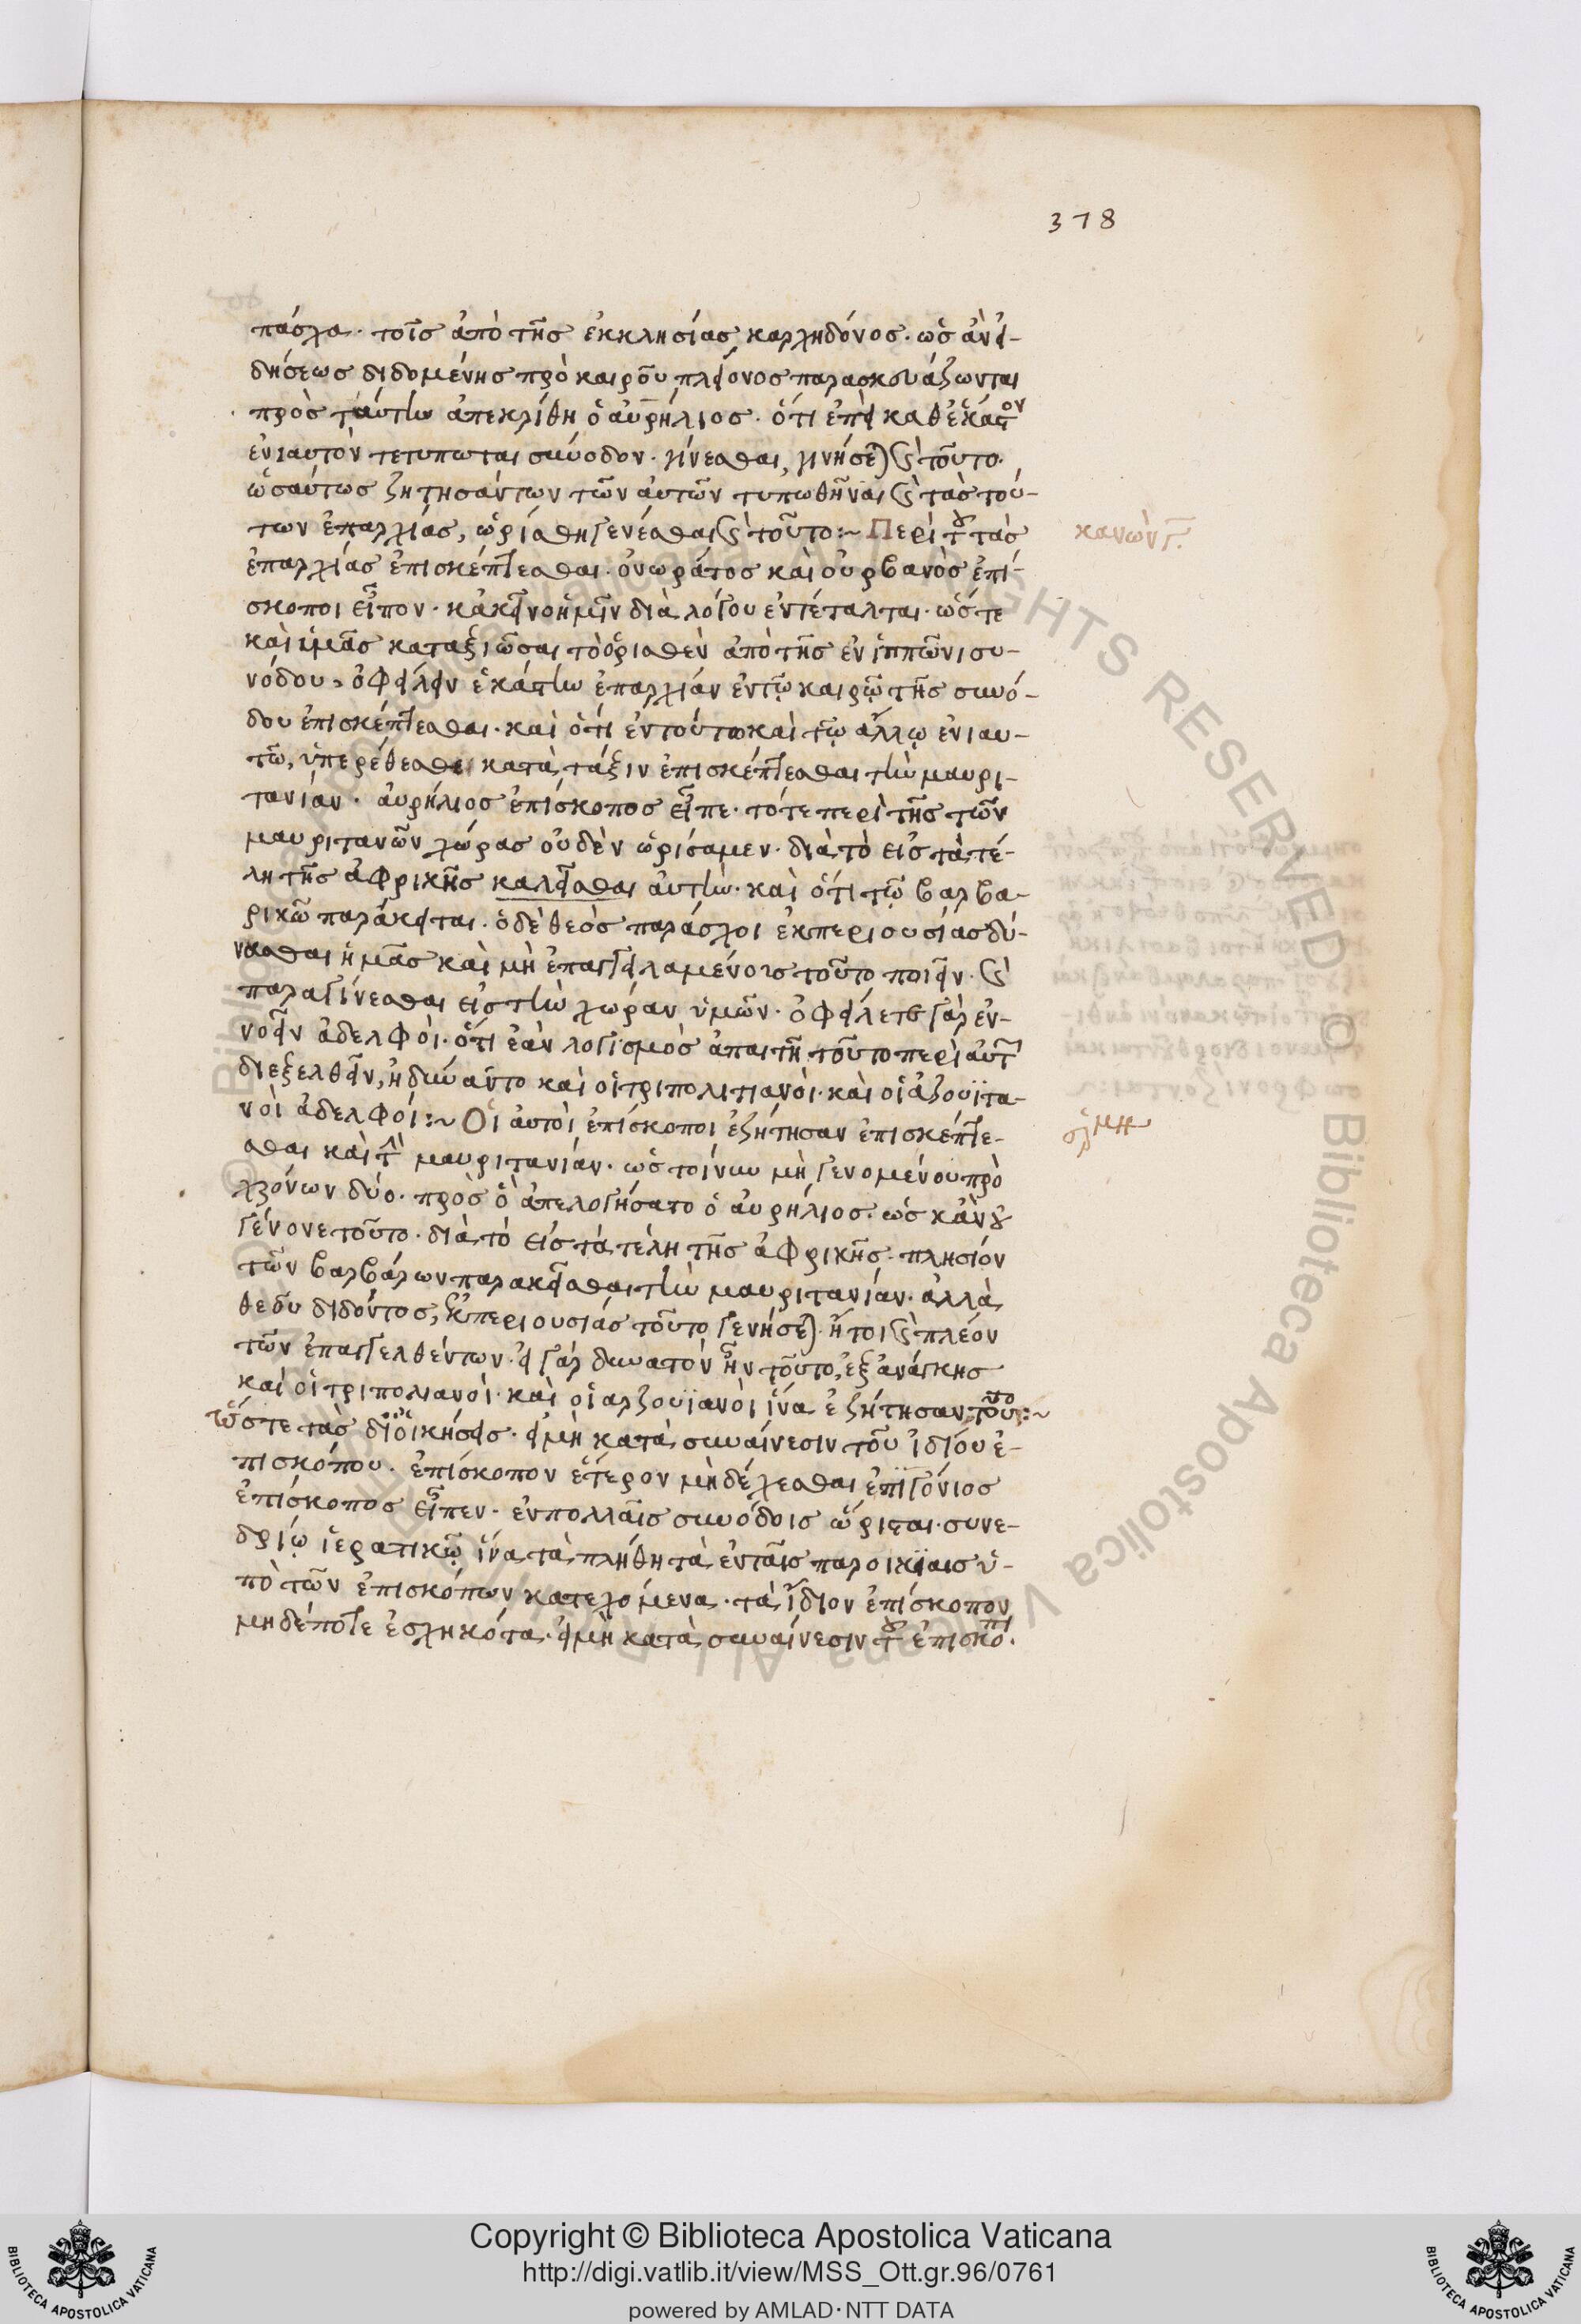 378
πάσχα· τοῖς ἀπὸ τῆς ἐκκλησίας καρχηδόνος· ὡς ἂν εἰ-
δήσεως διδομένης πρὸ καιροῦ πλείονος παρασκευάζωνται
πρὸς ταύτην ἀπεκρίθη ὁ αὐρήλιος· ὅτι ἐπεὶ καθ' ἕκαστον
ἐνιαυτὸν τετύπωται σύνοδον· γίνεσθαι, γινήσεται καὶ τοῦτο·
ὡσαύτως ζητησάντων τῶν αὐτῶν τυπωθῆναι καὶ τὰς τού-
των ἐπαρχίας, ὡρίσθη γενέσθαι καὶ τοῦτο:~ Περὶ τοῦ τὰς
κανὼν
ἐπαρχίας ἐπισκέπτεσθαι· ὁνωράτος καὶ οὐρβανὸς ἐπί-
σκοποι εἶπον· κἀκεῖνο ἡμῖν διὰ λόγου ἐντέταλται· ὥστε
καὶ ὑμᾶς καταξιῶσαι τὸ ὁρισθὲν ἀπὸ τῆς ἐν ἱππῶνι συ-
νόδου· ὀφείλειν ἑκάστην ἐπαρχίαν ἐν τῷ καιρῷ τῆς συνό-
δου ἐπισκέπτεσθαι· καὶ ὅτι ἐν τούτω καὶ τῷ ἄλλῳ ἐνιαυ-
τῶ, ὑπερέθεσθε κατὰ τάξιν ἐπισκέπτεσθαι τὴν μαυρι-
τανίαν· ἀυρήλιος ἐπίσκοπος εἶπε· τότε περὶ τῆς τῶν
μαυριτανῶν χώρας οὐδὲν ὡρίσαμεν· διὰ τὸ εἰς τὰ τέ-
λη τῆς ἀφρικῆς καλεῖσθαι ἀυτὴν· καὶ ὅτι τῷ βαρβα-
ρικῶ παράκειται· ὁ δὲ θεὸς παράσχοι ἐκ περιουσίας δύ-
νασθαι ἡμᾶς καὶ μὴ ἐπαγγειλαμένοις τοῦτο ποιεῖν· καὶ
παραγίνεσθαι εἰς τὴν χώραν ὑμῶν· ὀφείλετε γὰρ ἐν-
νοεῖν ἀδελφοὶ· ὅτι ἐὰν λογισμὸς ἀπαιτῆ τοῦτο περὶ αὐτῶν
διεξελθεῖν, ἠδύναντο καὶ οἱ τριπολιτιανοὶ· καὶ οἱ ἀζουϊτα-
νοὶ ἀδελφοί:~ Οἱ ἀυτοὶ ἐπίσκοποι ἐζήτησαν ἐπισκέπτε-
σθαι καὶ τὴν μαυριτανίαν· ὡς τοίνυν μὴ γενομένου πρὸ
χρόνων δύο· πρὸς ὃ ἀπελογήσατο ὁ αυρήλιος· ὡς κἂν οὐ
γέγονε τοῦτο· διὰ τὸ εἰς τὰ τέλη τῆς ἀφρικῆς· πλησίον
τῶν βαρβάρων παρακεῖσθαι τὴν μαυριτανίαν· ἀλλὰ
θεοῦ διδόντος, ἐκ περιουσίας τοῦτο γενήσεται· ἤτοι καὶ πλέον
τῶν ἐπαγγελθέντων· εἰ γὰρ δυνατὸν ἦν τοῦτο, ἐξ ἀνάγκης
καὶ οἱ τριπολιανοὶ· καὶ οἱ αρζουϊανοὶ ἵνα ἐζήτησαν τοῦτο:~
τῶστε τὰς διοικήσεις· εἰ μὴ κατὰ συναίνεσιν τοῦ ἰδίου ἐ-
πισκόπου· ἐπίσκοπον ἕτερον μὴ δέχεσθαι ἐπιγόνιος
ἐπίσκοπος εἶπεν· ἐν πολλαῖς συνόδοις ὥρισται· συνε-
δρίῳ ἱερατικῷ ἵνα τὰ πλήθη τὰ ἐν ταῖς παροικίαις ὑ-
πὸ τῶν ἐπισκόπων κατεχόμενα· τὰ ἴδιον ἐπίσκοπον
μηδέποτε ἐσχηκότα· εἰ μὴ κατὰ συναίνεσιν τοῦ ἐπισκόπου·